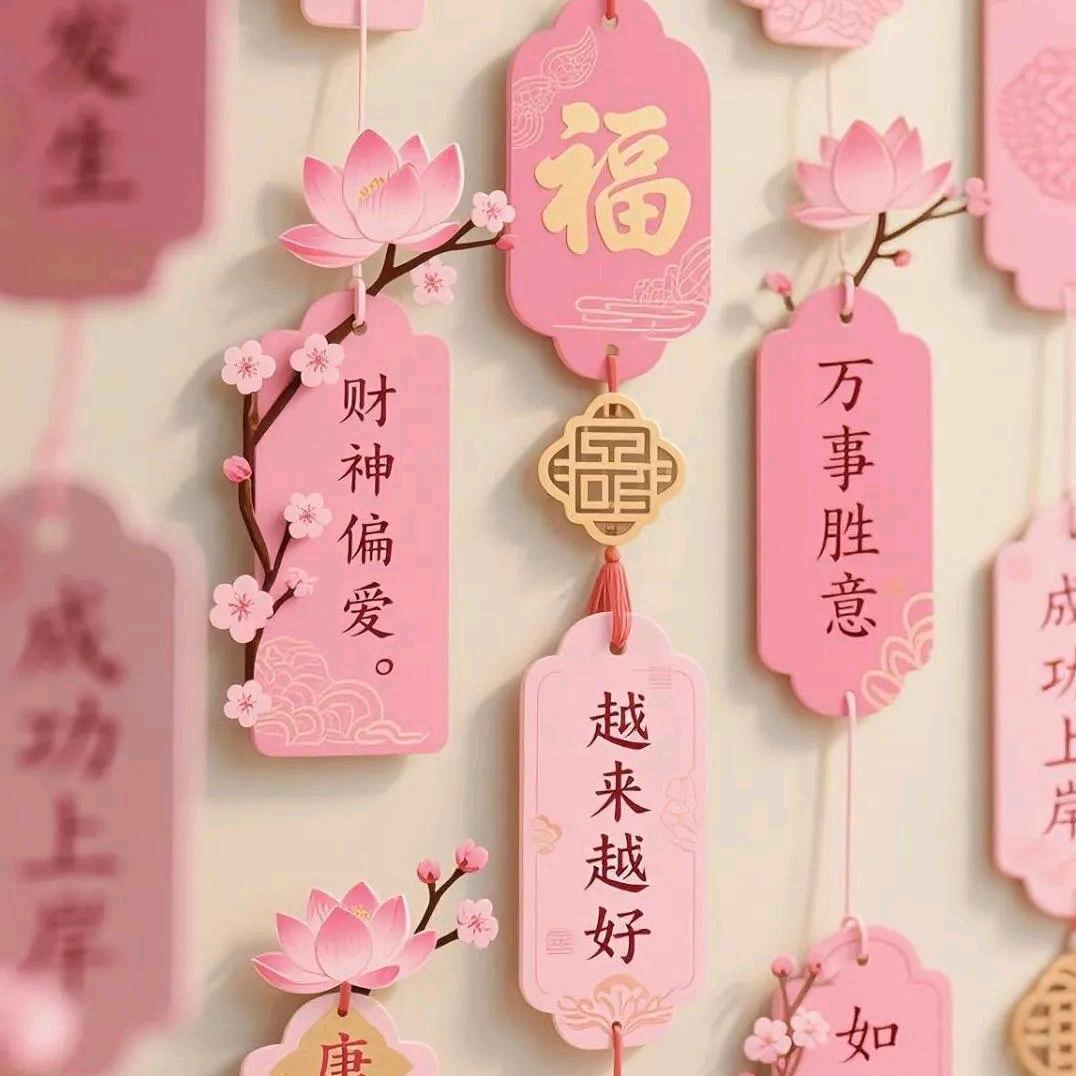 发生
成功上岸
财神偏爱。
福
越来越好
万事胜意
如
成功上岸